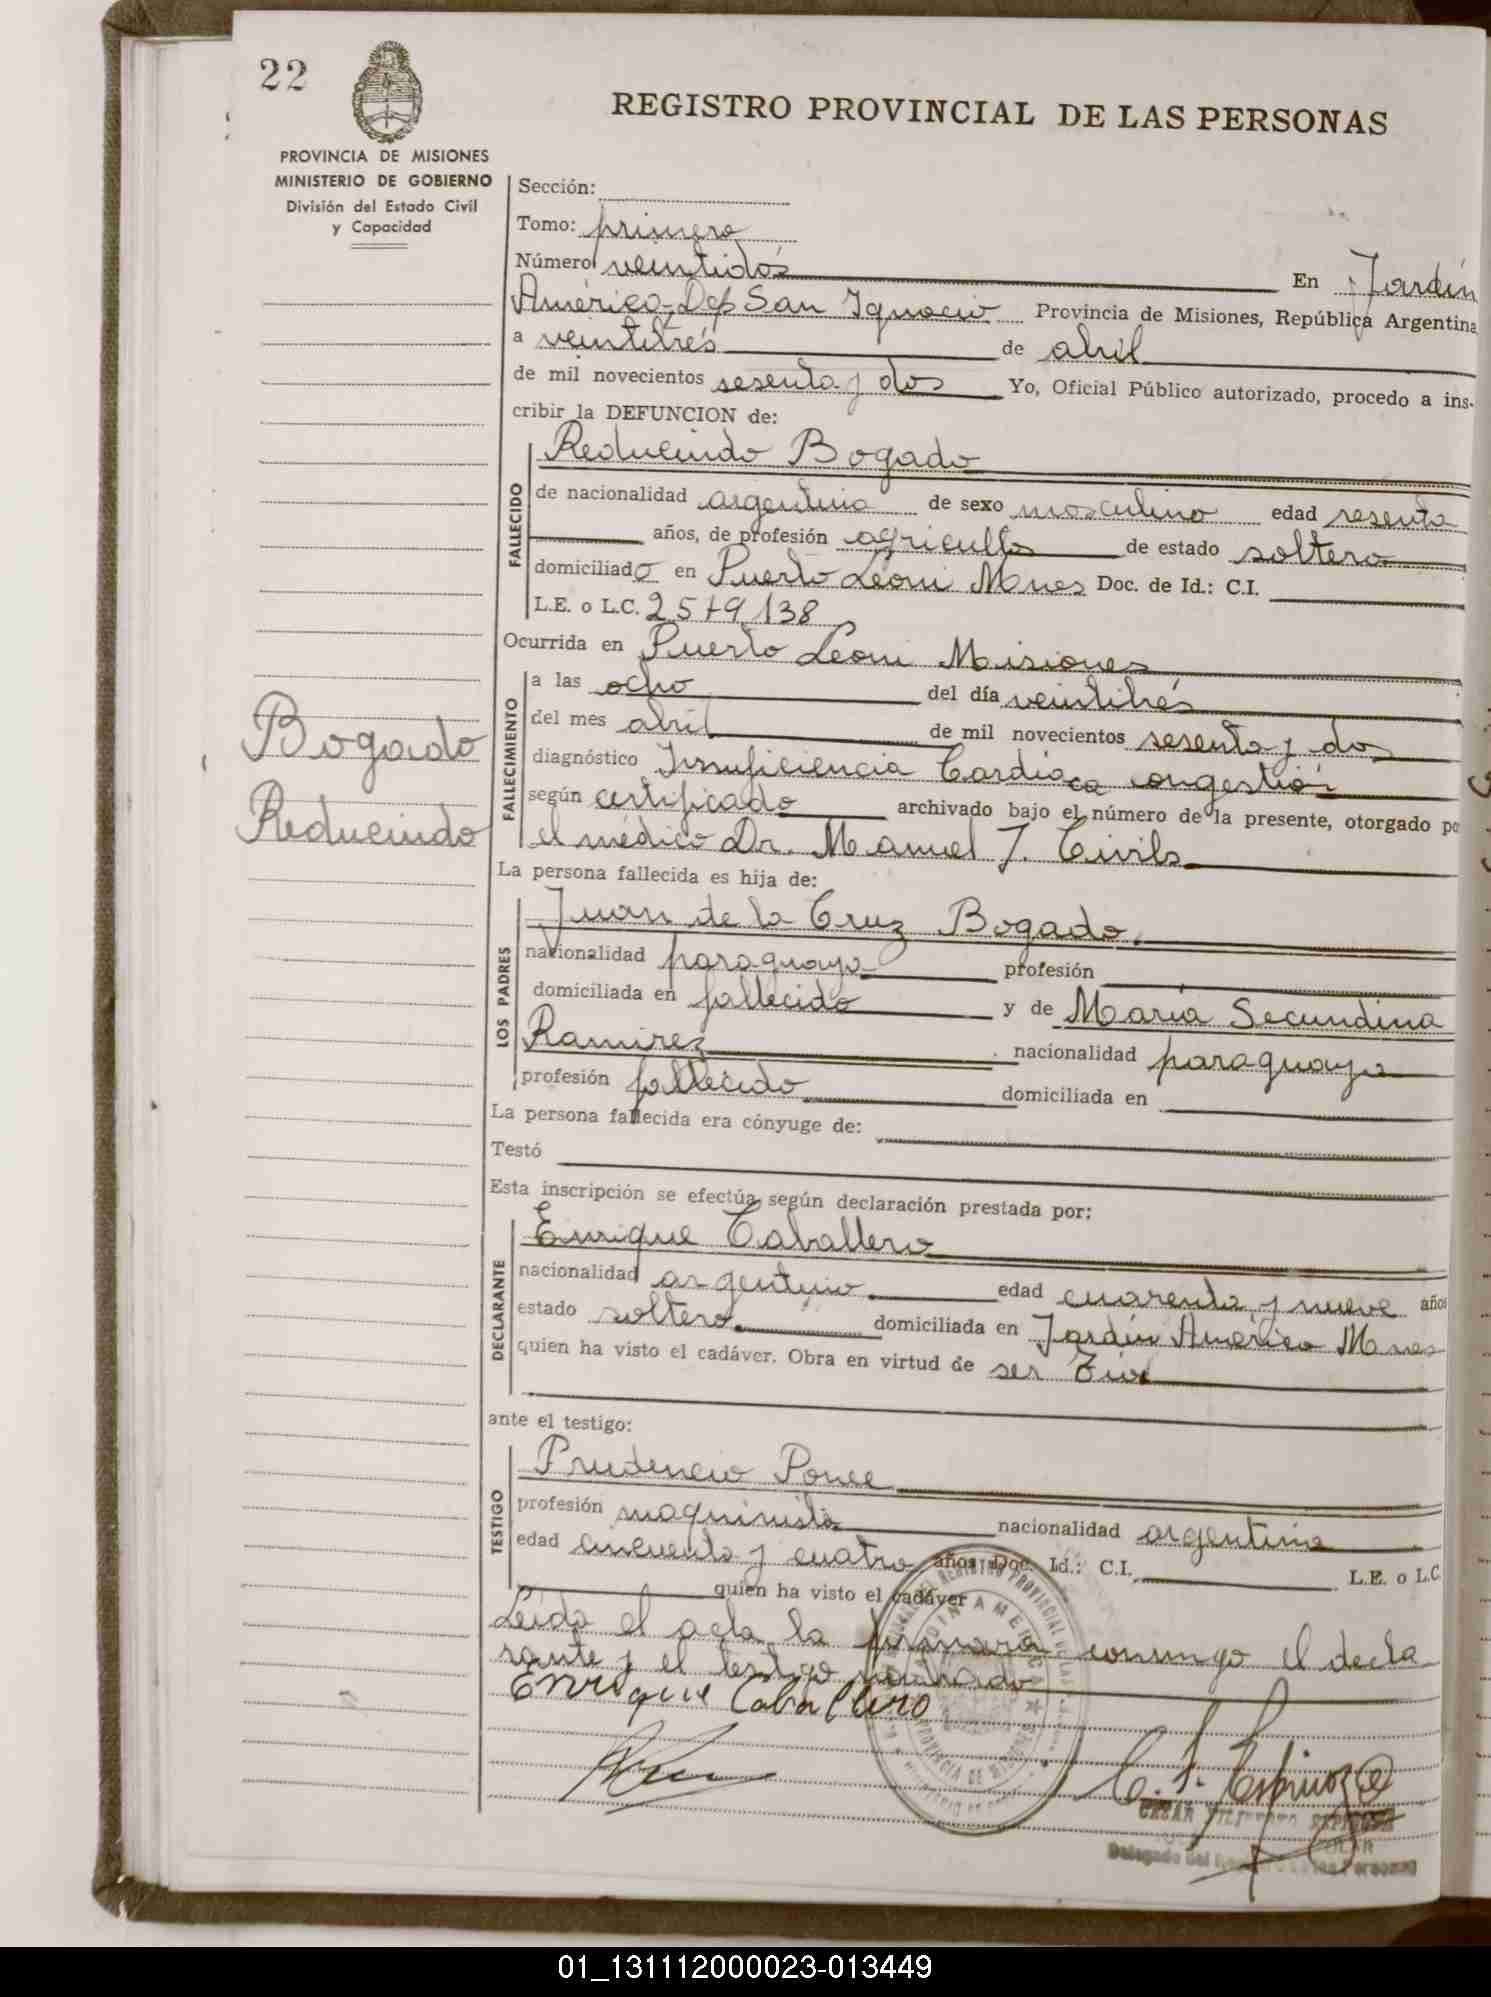 22
REGISTRO PROVINCIAL DE LAS PERSONAS
PROVINCIA DE MISIONES
MINISTERIO DE GOBIERNO
División del Estado Civil
y Capacidad
Sección:
Tomo: primero
Número veintidós En Jardín
América-Dep San Ignacio Provincia de Misiones, República Argentina
a veintitrés de abril
de mil novecientos sesenta y dos Yo, Oficial Público autorizado, procedo a ins-
cribir la DEFUNCION de:
FALLECIDO
Reducindo Bogado
de nacionalidad argentina de sexo masculino edad sesenta
años, de profesión agricultor de estado soltero
domiciliado en Puerto Leoni Mnes Doc. de Id.: C.I.
L.E. o L.C. 2579138
Ocurrida en Puerto Leoni Misiones
FALLECIMIENTO
a las ocho del día veintitrés
del mes abril de mil novecientos sesenta y dos
diagnóstico Insuficiencia Cardíaca congestión
según certificado archivado bajo el número de la presente, otorgado po
el médico Dr. Manuel J. Civils
Bogado
Reducindo
La persona fallecida es hija de:
LOS PADRES
Juan de la Cruz Bogado
nacionalidad paraguaya profesión
domiciliada en fallecido y de María Secundina
Ramirez nacionalidad paraguaya
profesión fallecido domiciliada en
La persona fallecida era cónyuge de:
Testó
Esta inscripción se efectúa según declaración prestada por:
DECLARANTE
Enrique Caballero
nacionalidad argentino edad cuarenta y nueve años
estado soltero domiciliada en Jardín América Mnes
quien ha visto el cadáver. Obra en virtud de ser
ante el testigo:
TESTIGO
Prudencio Ponce
profesión maquinista nacionalidad argentina
edad cincuenta y cuatro años Doc. Id.: C.I. L.E. o L.C
quien ha visto el cadáver
Leída el acta la firmará conmigo el decla
rante y el testigo nombrado
Enrique Caballero
C. F. Espinoza
Delegado del Registro de las Personas
01_131112000023-013449